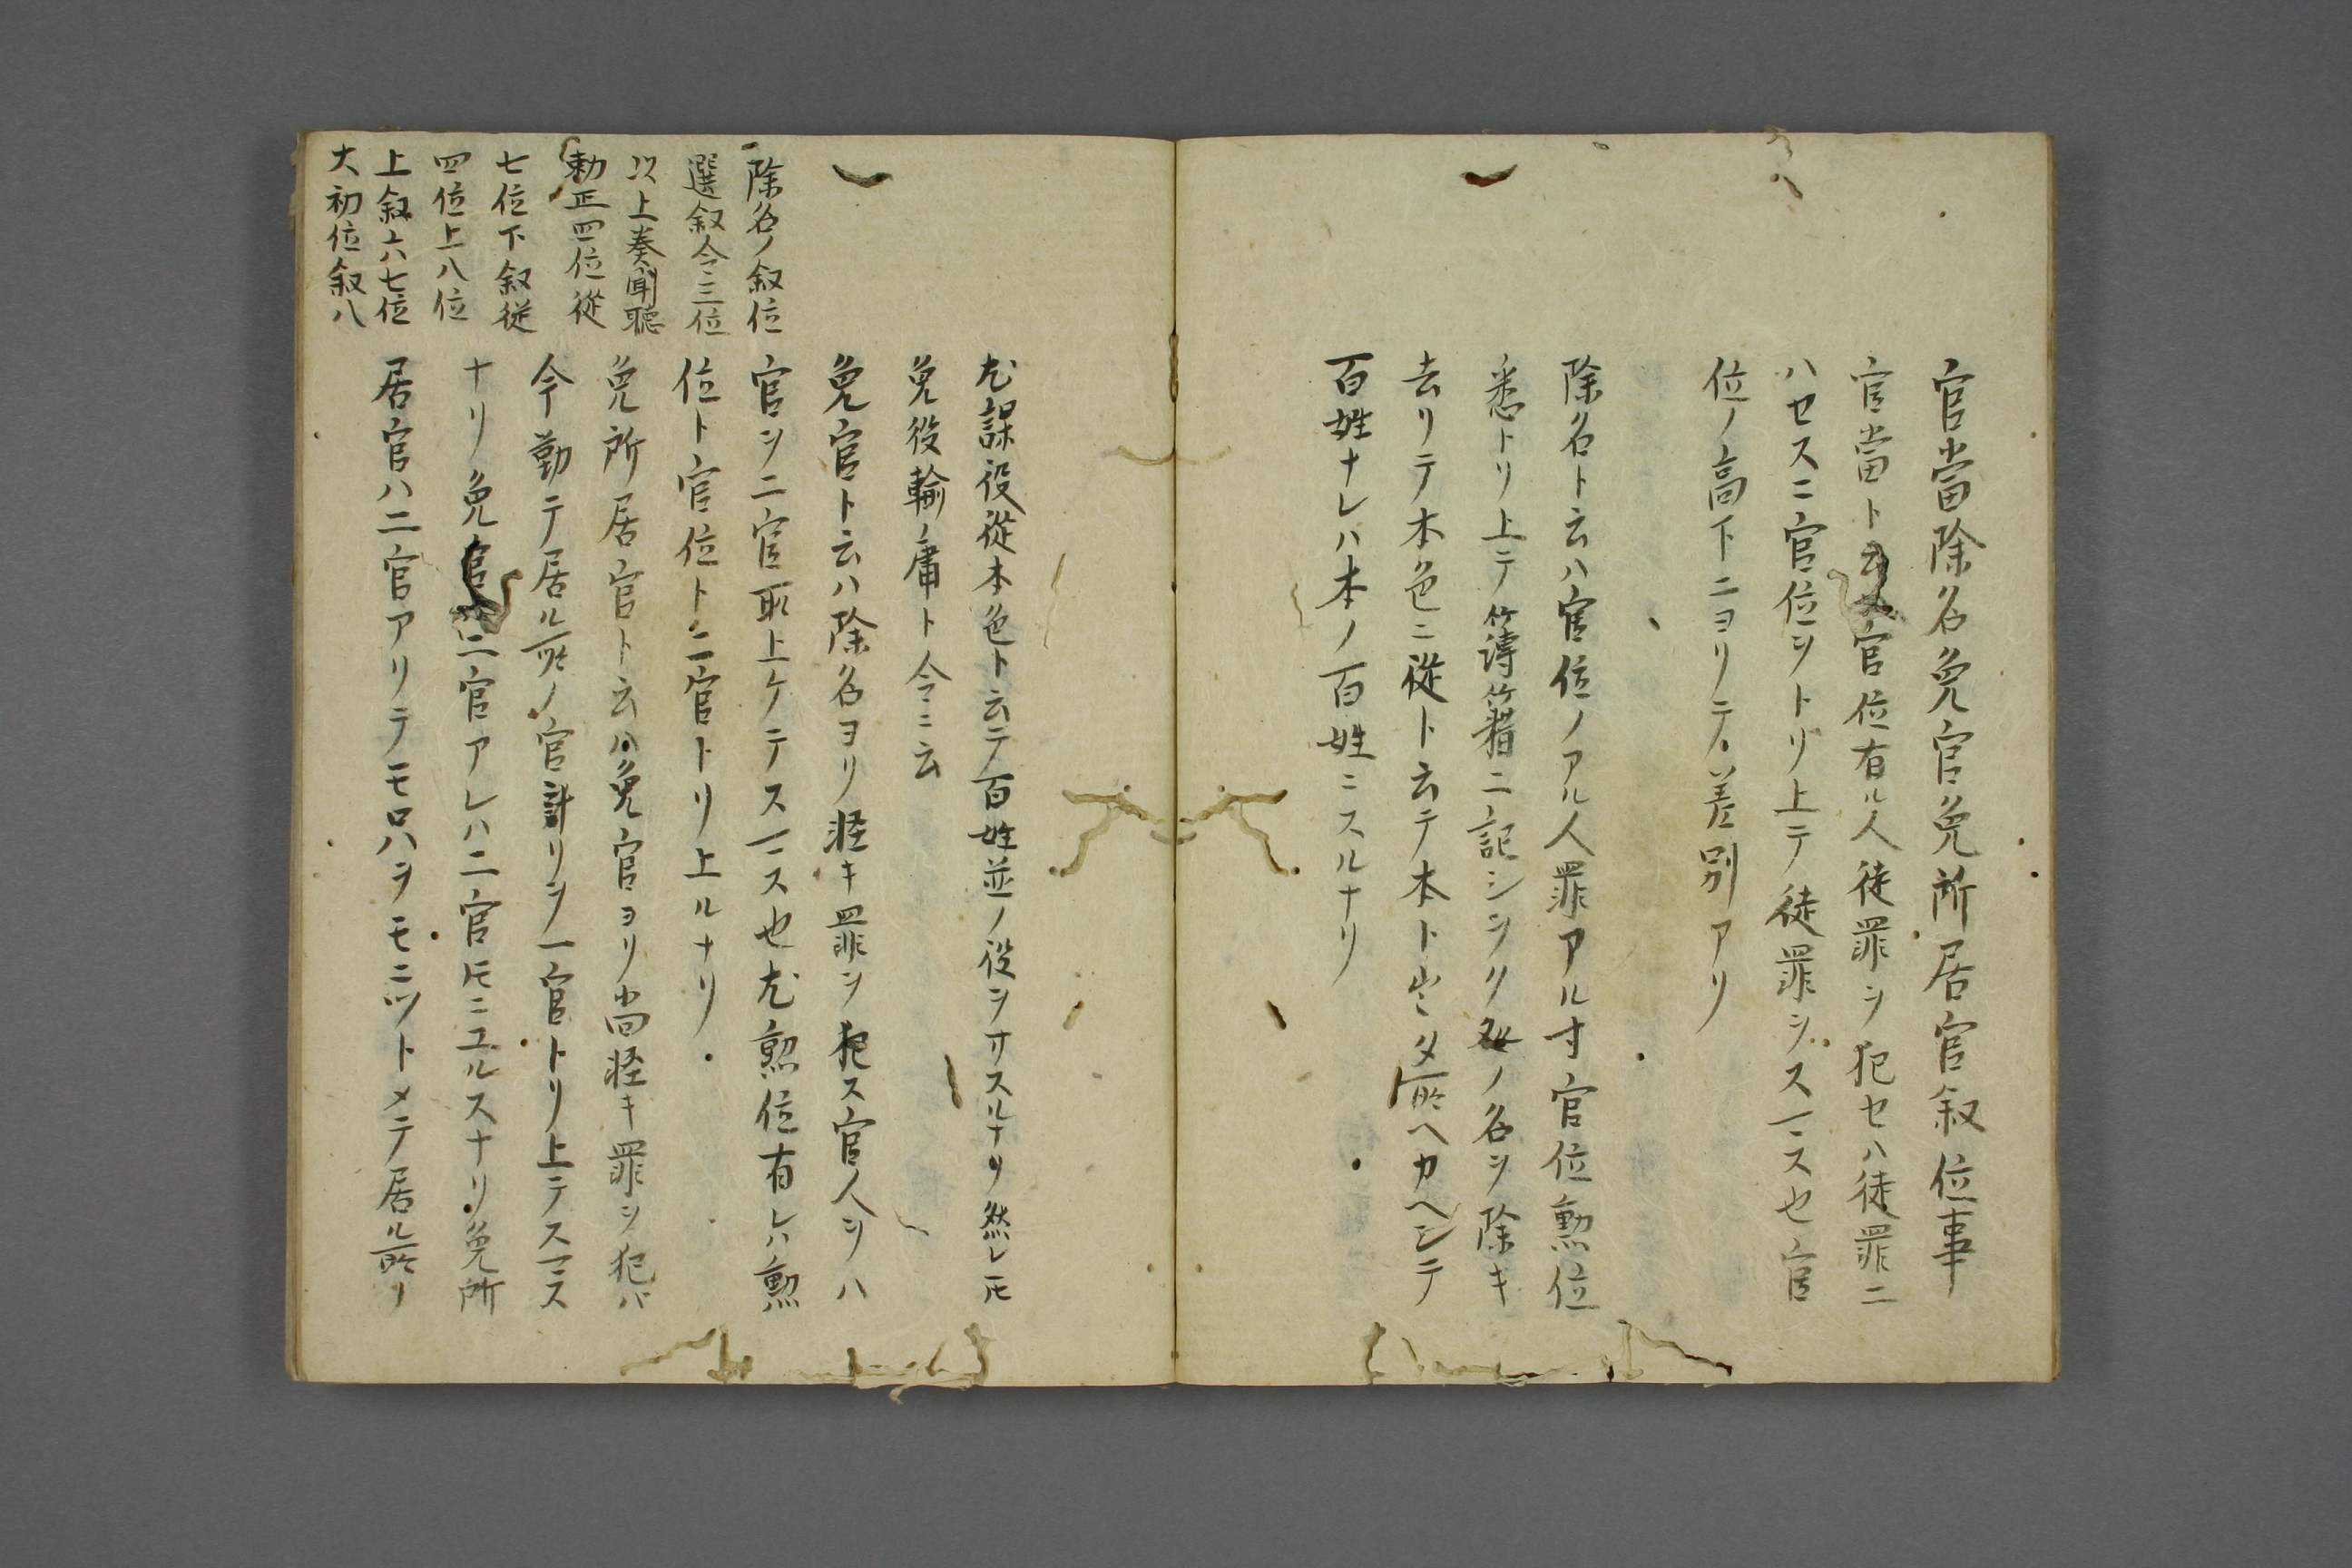 官當除名免官免所居官叙位事
官當ト云官位有ル人徒罪ヲ犯セハ徒罪ニ
ハセスニ官位ヲトリ上テ徒罪ヲスヿニス也官
位ノ高下ニヨリテ差別アリ
除名ト云ハ官位ノアル人罪アル寸官位勲位
悉トリ上テ簿籍ニ記シヲクノ名ヲ除キ
去リテ本色ニ從ト云テ本ト出タ所ヘカヘシテ
百姓ナレハ本ノ百姓ニスルナリ
尤課役從本色ト云テ百姓並ノ役ヲサスルナリ然レ𪜈
免役輸庸ト令ニ云
免官ト云ハ除名ヨリ軽キ罪ヲ犯ス官人ヲハ
官ヲ二官取上ケテスヿニス也尤勲位有レハ勲
位ト官位ト二官トリ上ルナリ
免所居官ト云ハ免官ヨリ尚軽キ罪ヲ犯バ
今勤テ居ル所ノ官計リヲ一官トリ上テスヿニス
ナリ免官ハ二官アレハ二官𪜈ニユルスナリ免所
居官ハ二官アリテモロハヲモニツトメテ居ル所リ
除名ノ叙位
選叙令三位
以上奏聞聴
勅正四位從
七位下叙従
四位上八位
上叙六七位
大初位叙八